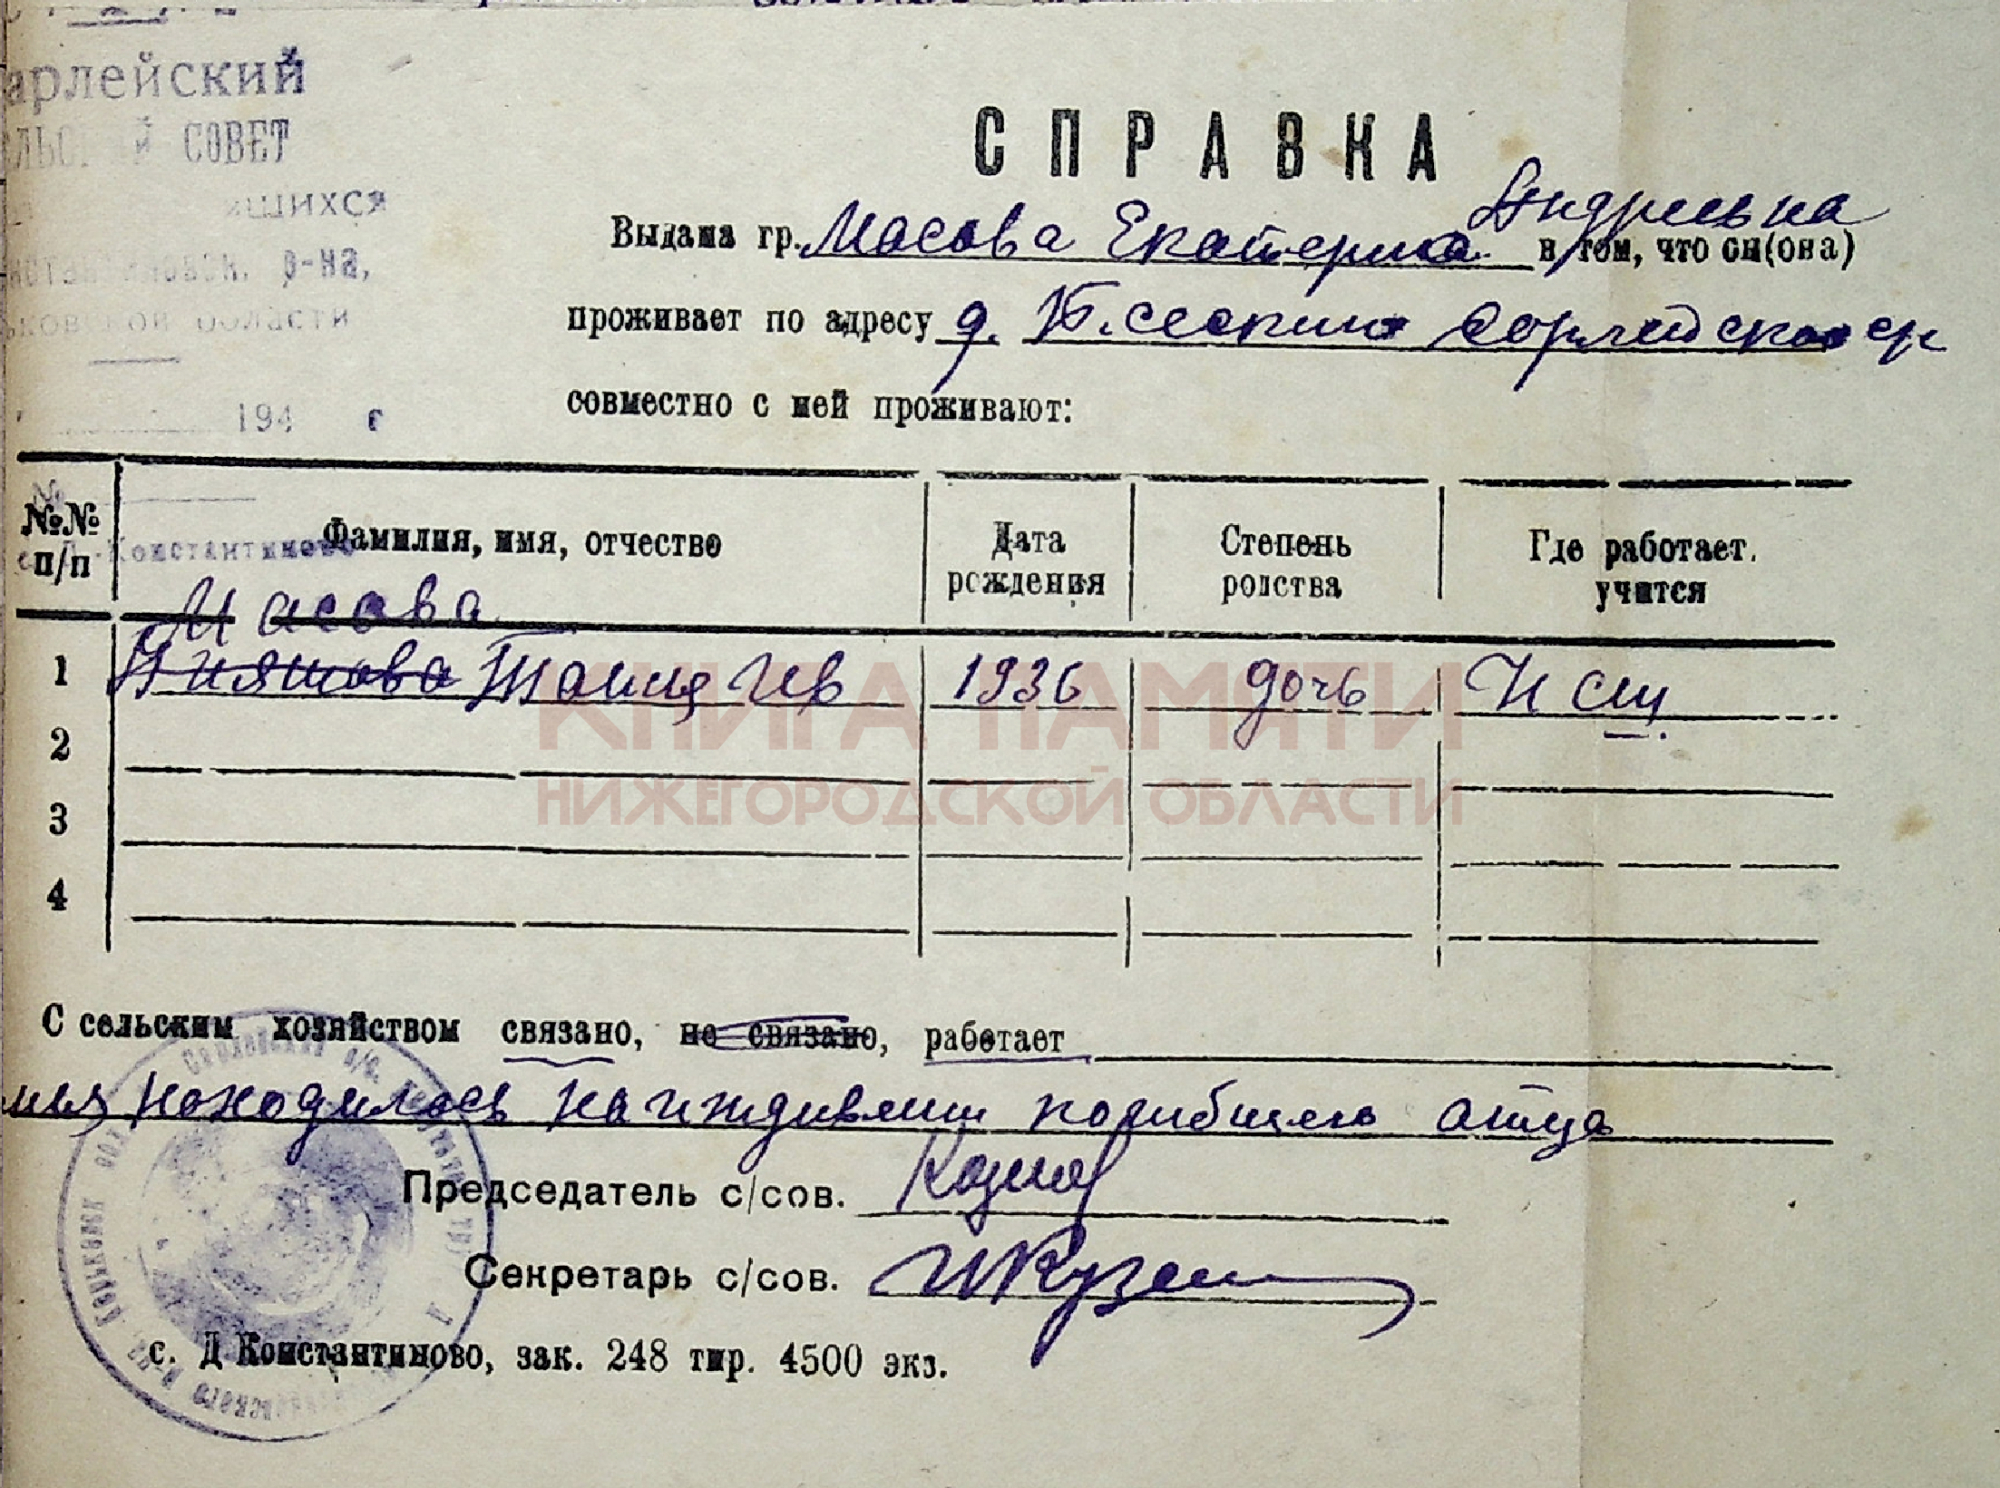 арлейский
СОВЕТ
ившихся
р-на,
области
194 г
СПРАВКА
Андреевна
Выдана гр. Масова Екатерина в том, что он(она)
проживает по адресу д.
совместно с ней проживают:
№№ п/п
Фамилия, имя, отчество
Дата рождения
Степень родства
Где работает. учится
Константиново
Масова
1 Таисия Ив 1936 дочь
2
3
4
КНИГА ПАМЯТИ
НИЖЕГОРОДСКОЙ ОБЛАСТИ
С сельским хозяйством связано, не связано, работает
находилась на иждивении погибшего отца
Председатель с/сов.
Секретарь с/сов.
с. Д Константиново, зак. 248 тир. 4500 экз.